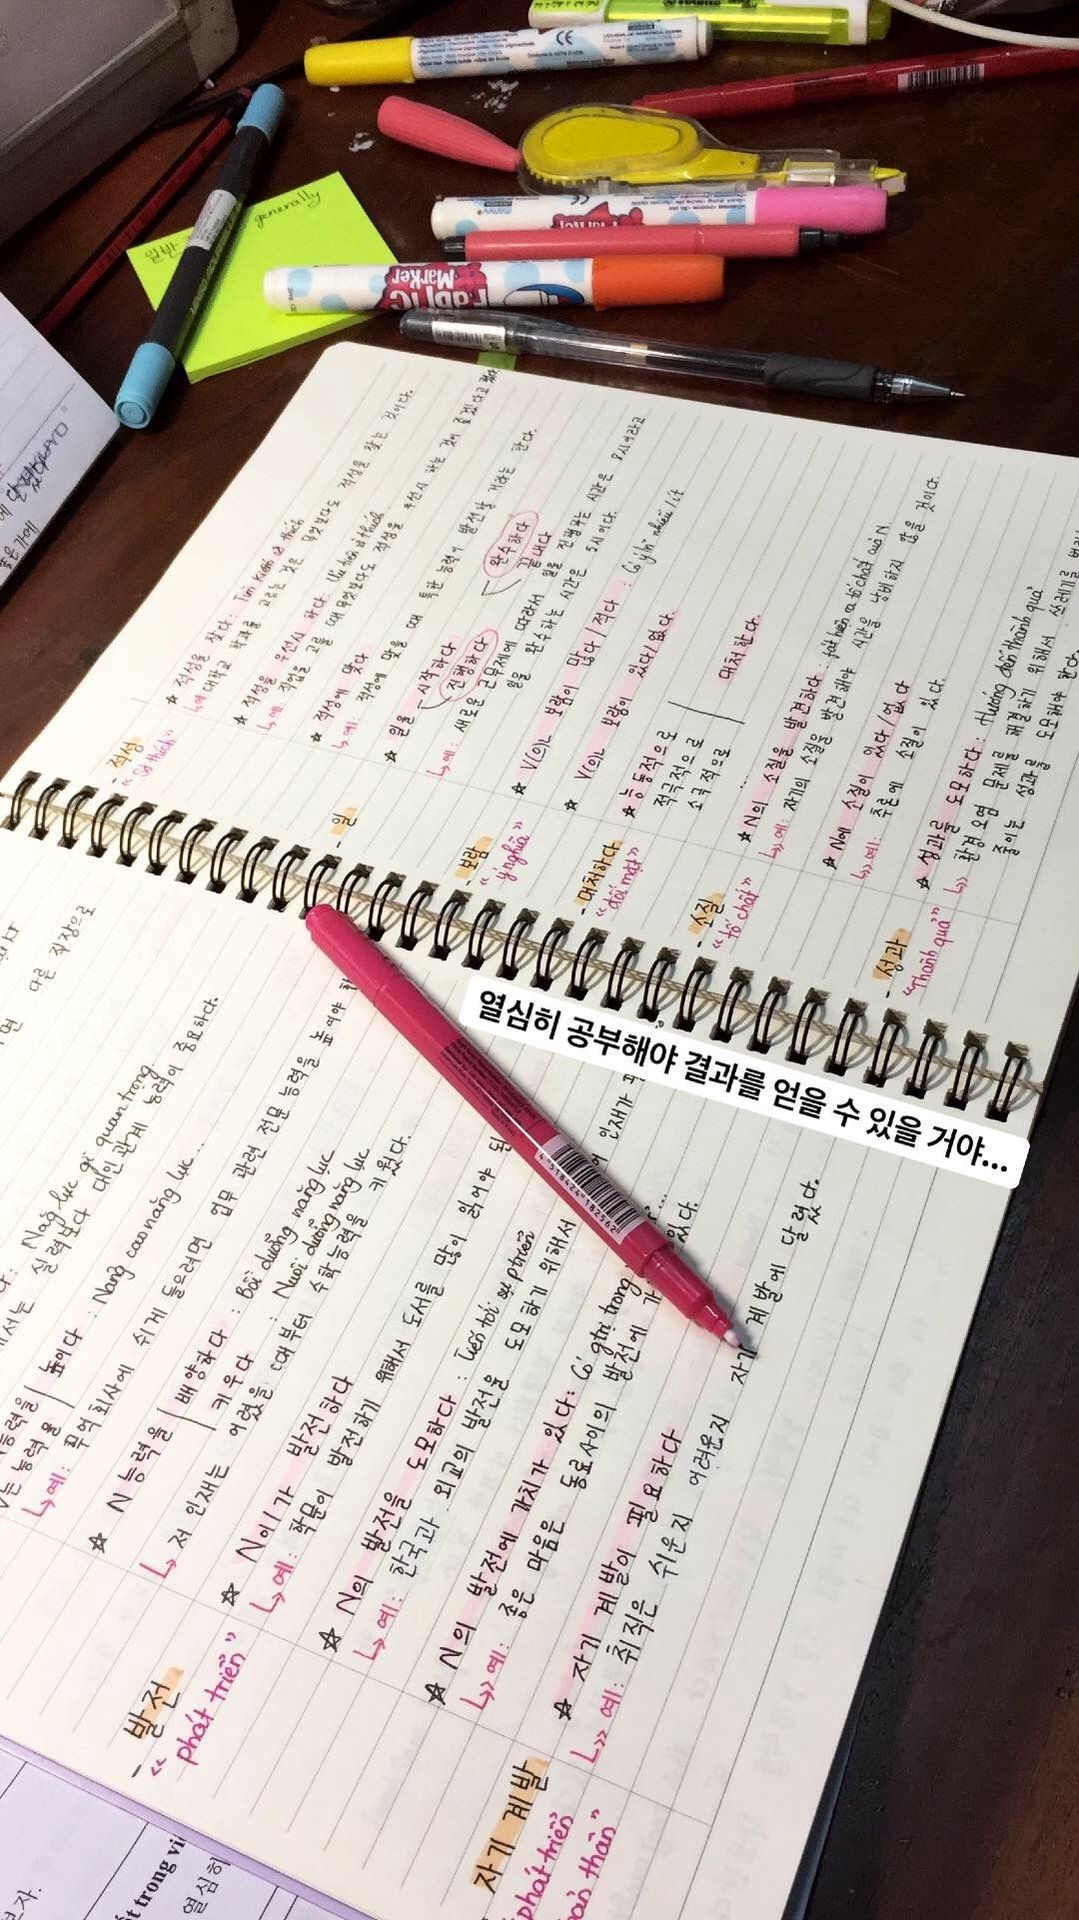 일반
generally
Marker
FABRIC
Marker
- 적성
"Sở thích"
☆ 적성을 찾다: Tìm kiếm sở thích
↳ 예: 대학교 학과를 고르는 것은 무엇보다도 적성을 찾는 것이다.
☆ 적성을 우선시 하다: Ưu tiên sở thích
↳ 예: 직업을 고를 때 무엇보다도 적성을 우선시 하는 것이 좋겠다고
☆ 적성에 맞다
↳ 예: 적성에 맞을 때 특한 능력이 발전할 거라는 한다.
- 일
☆ 일을 시작하다
진행하다
완수하다
끝내다
↳ 예: 새로운 근무제에 따라서 일을 진행하는 시간은 8시이라고
일을 완수하는 시간은 5시이다.
- 보람
"ý nghĩa"
☆ V(으)ㄴ 보람이 많다/적다: Có ý nhiều/ít
☆ V(으)ㄴ 보람이 있다/없다.
- 대처하다
"đối mặt"
☆ 능동적으로
적극적으로
소극적으로
대처한다.
- 소질
"tố chất"
☆ N의 소질을 발견하다: phát hiện ra tố chất của N
↳ 예: 자기의 소질을 발견해야 시간을 낭비하지 않을 것이다.
☆ N에 소질이 있다/없다
↳ 예: 추론에 소질이 있다.
- 성과
"Thành quả"
☆ 성과를 도모하다: Hướng đến thành quả
↳ 환경 오염 문제를 해결하기 위해서 쓰레기를
줄이는 성과를 도모해야 한다.
열심히 공부해야 결과를 얻을 수 있을 거야...
다른 직장으로
: Năng lực gì quan trọng
실력보다 대인 관계 능력이 중요하다.
높이다: Nâng cao năng lực...
↳ 예: 무역 회사에 쉽게 들으려면 업무 관련 전문 능력을 높여야
☆ N 능력을 배양하다: Bồi dưỡng năng lực
키우다: Nuôi dưỡng năng lực
↳ 저 인재는 어렸을 때부터 수학능력을 키웠다.
- 발전
"phát triển"
☆ N이/가 발전하다
↳ 예: 학문이 발전하기 위해서 도서를 많이 읽어야 된
☆ N의 발전을 도모하다: Tiến tới sự phát triển
↳ 예: 한국과 외교의 발전을 도모하기 위해서 인재가
☆ N의 발전에 가치가 있다: Có giá trị trong
↳ 예: 좋은 마음은 동료사이의 발전에 가 있다.
자기 계발
phát triển
bản thân"
☆ 자기 계발이 필요하다
↳ 예: 취직은 쉬운지 어려운지 자기 계발에 달렸다.
4 518424 182562
열심히
보자.